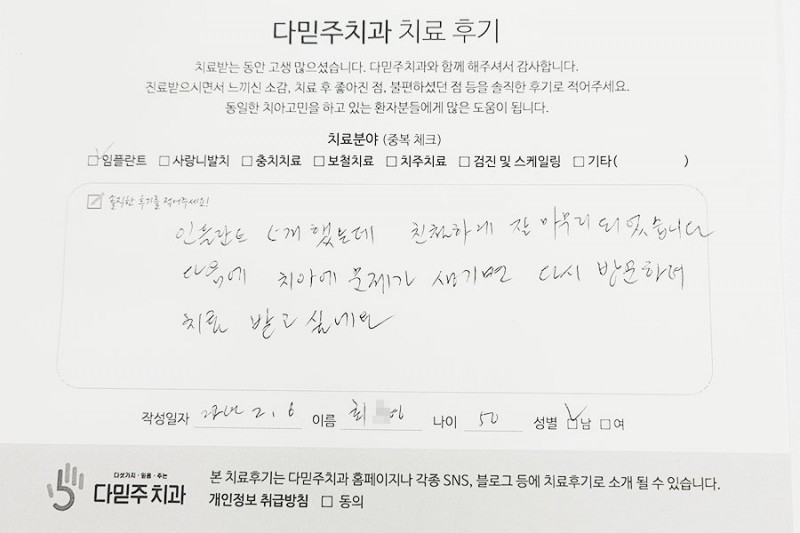 다믿주치과 치료 후기
치료받는 동안 고생 많으셨습니다. 다믿주치과와 함께 해주셔서 감사합니다.
진료받으시면서 느끼신 소감, 치료 후 좋아진 점, 불편하셨던 점 등을 솔직한 후기로 적어주세요.
동일한 치아고민을 하고 있는 환자분들에게 많은 도움이 됩니다.
치료분야 (중복 체크)
☑임플란트 □사랑니발치 □충치치료 □보철치료 □치주치료 □검진 및 스케일링 □기타( )
솔직한 후기를 적어주세요!
인플란트 5개 했는데 친절하게 잘 마무리 되었습니다
다음에 치아에 문제가 생기면 다시 방문하여
치료 받고 싶네요
작성일자 2. 6 이름 최 나이 50 성별 ☑남 □여
다섯가지·믿음·주는
다믿주치과
본 치료후기는 다믿주치과 홈페이지나 각종 SNS, 블로그 등에 치료후기로 소개 될 수 있습니다.
개인정보 취급방침 □ 동의